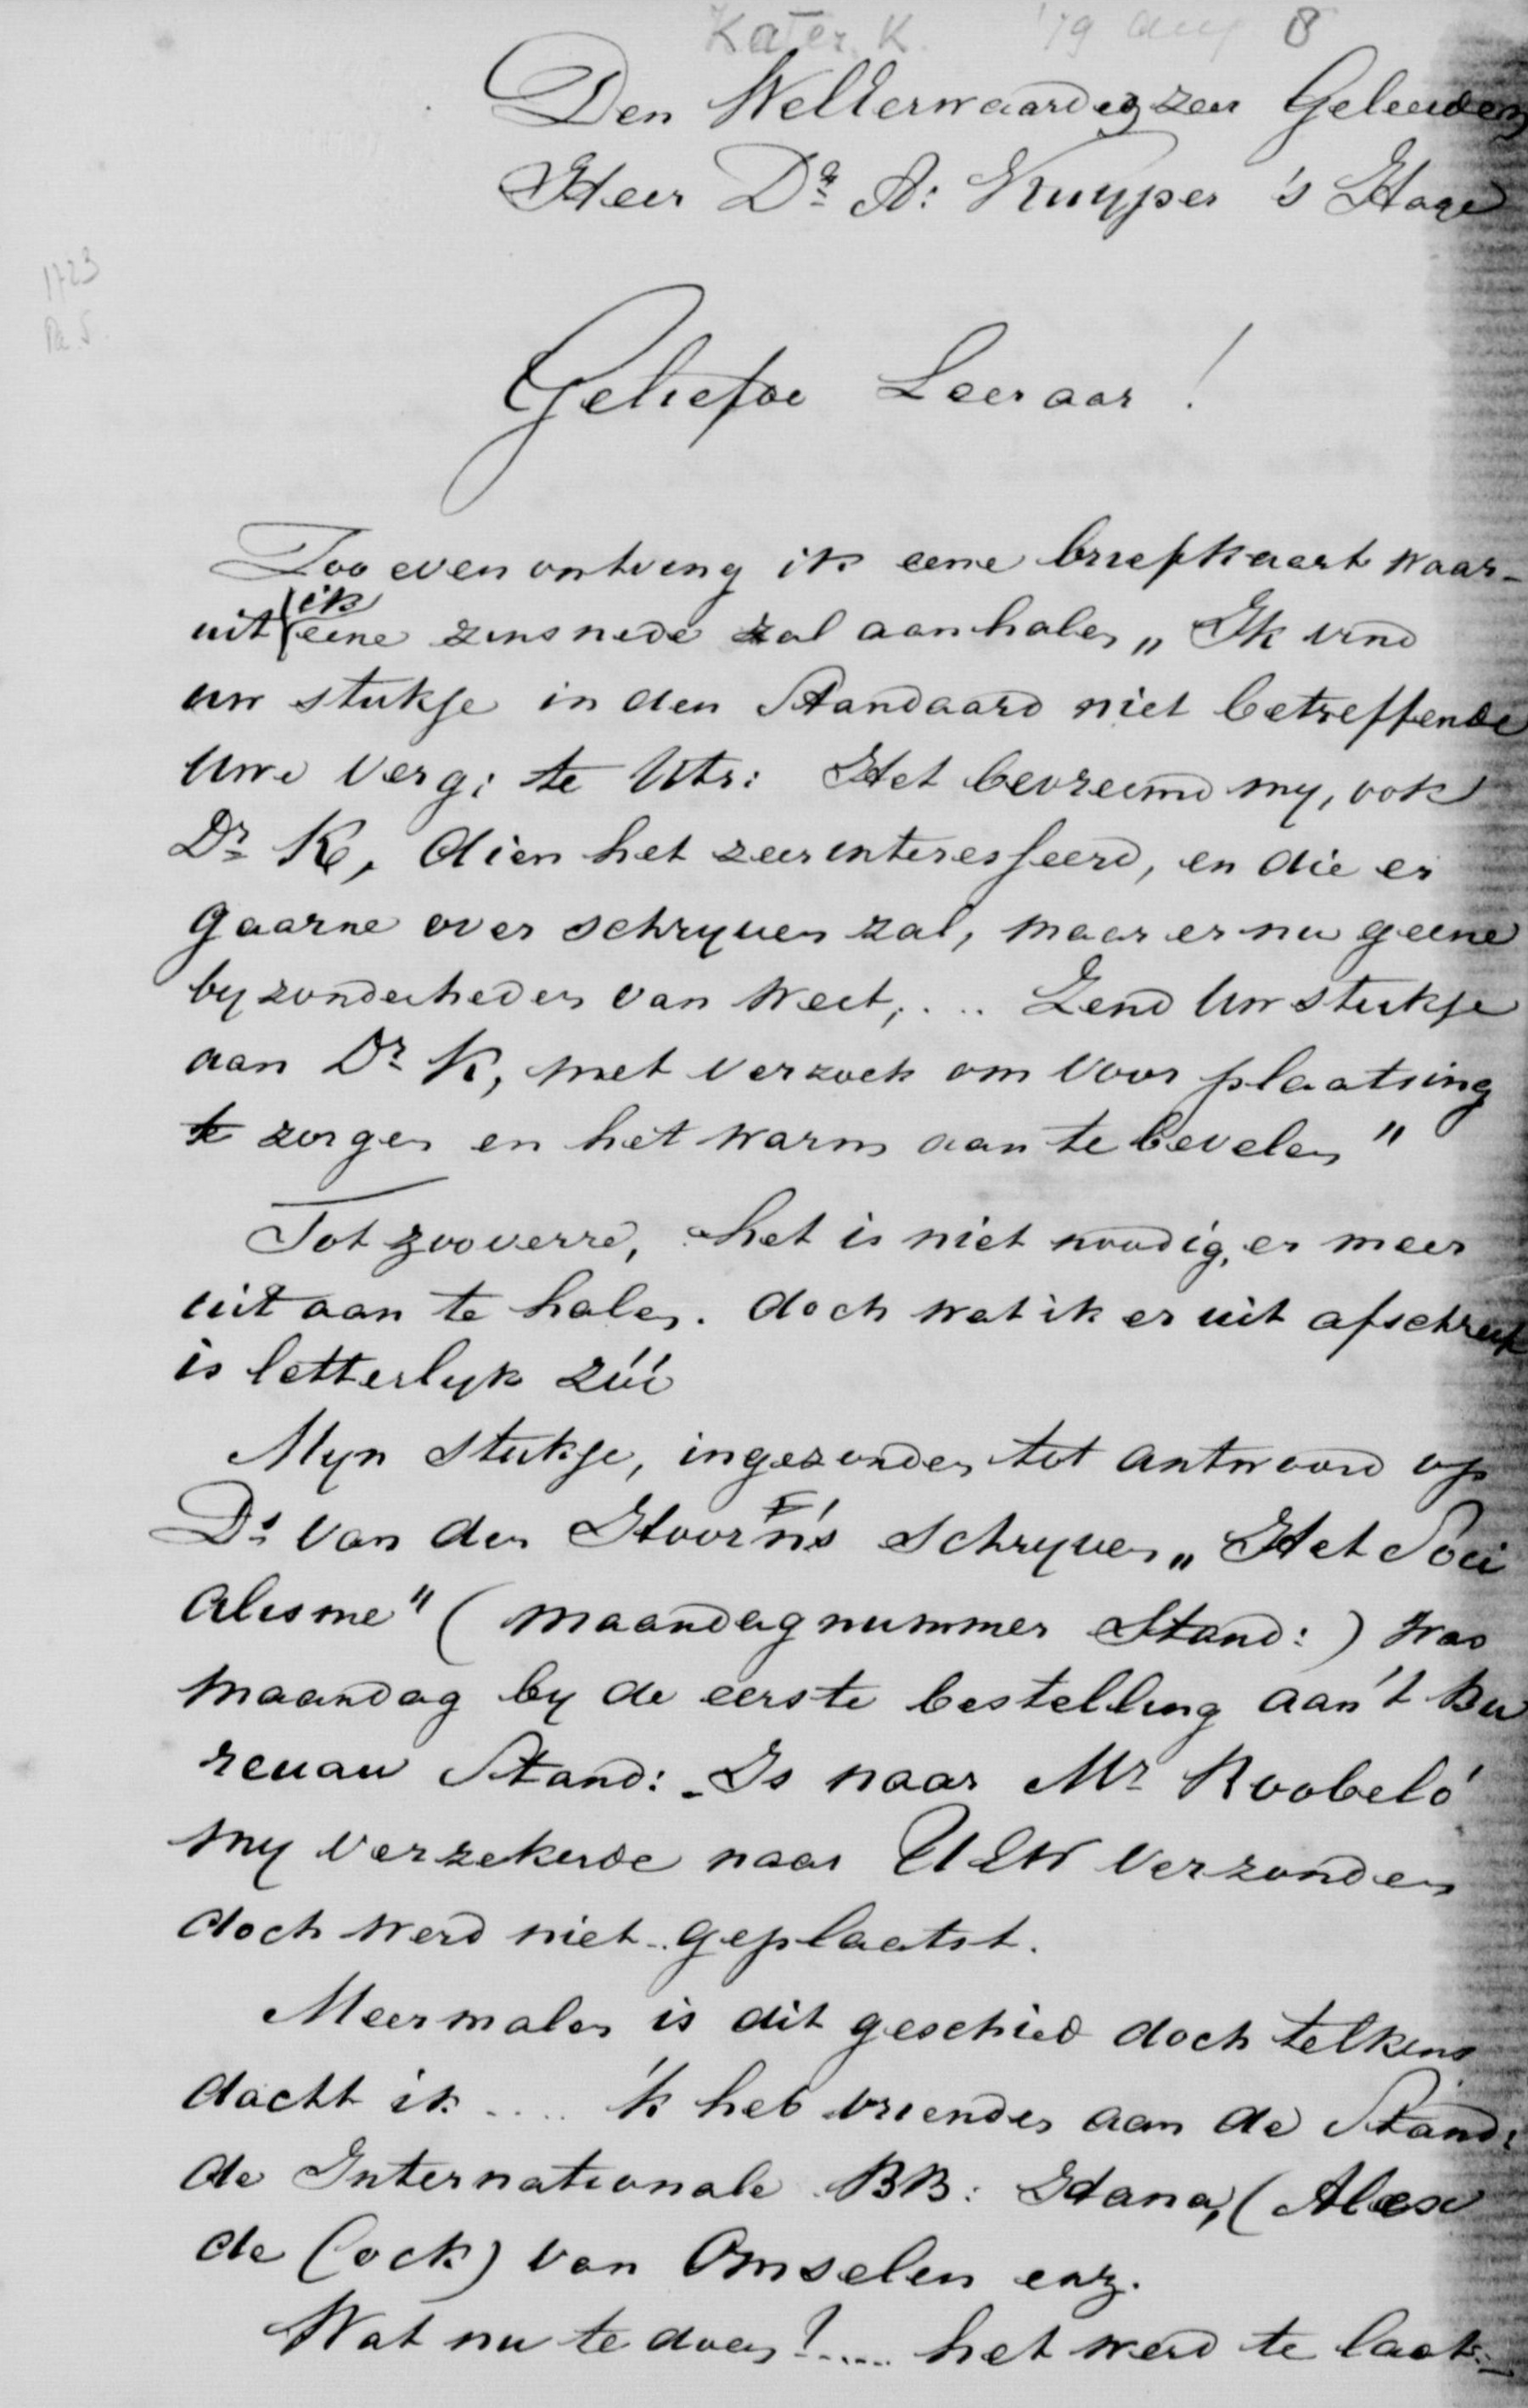 Kater, K. '79 aug 8
Den WelEerwaardig zeer Geleerden
Heer Dr. A: Kuyper 's Hage
1723
Geliefde Leeraar!
Zoo even ontving ik eene briefkaart waar-
uit ik eene zinsnede zal aanhalen „Ik vind
uw stukje in den Standaard niet betreffende
uwe verg: te Utr: Het bevreemd my, ook
Dr K, dien het zeer interesseerd, en die er
gaarne over schryven zal, maar er nu geene
byzonderheden van weet, .... Zend Uw stukje
aan Dr K, met verzoek om voor plaatsing
te zorgen en het warm aan te bevelen"
Tot zooverre, het is niet noodig, er meer
uit aan te halen. doch wat ik er uit afschreef
is letterlyk zóó
Myn stukje, ingezonden tot antwoord op
Ds van der Hoorn's schryven „Het Soci
alisme" (maandagnummer Stand:) was
maandag by de eerste bestelling aan 't Bu
reuau Stand: Is naar Mr Roobel's
my verzekerde naar UEW verzonden
doch werd niet geplaatst.
Meermalen is dit geschied doch telkens
dacht ik .... 'k heb vrienden aan de Stand:
de Internationale BB: Hana, (Alex
de Cock) van Omselen enz.
Wat nu te doen? .... het werd te laat.